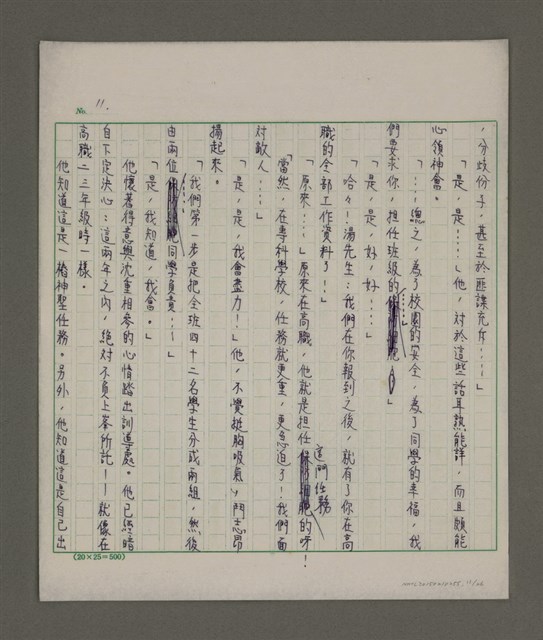 No. 11.
，分歧份子，甚至於匪諜充斥⋯⋯」
「是，是⋯⋯」他，对於這些話耳熟能詳，而且頗能
心領神會。
「⋯總之，為了校園的安全，為了同學的幸福，我
們要求你，担任班級的⋯⋯」
「是，是，好，好⋯⋯」
「哈々！湯先生：我們在你報到之後，就有了你在高
職的全部工作資料了！」
「原來⋯⋯」原來在高職，他就是担任這門任務的呀！
「當然，在專科學校，任務就更重，更急迫了！我們面
对敵人⋯⋯」
「是，是，我會盡力！」他，不覺挺胸吸氣，鬥志昂
揚起來。
「我們第一步是把全班四十二名學生分成兩組，然後
由兩位⋯⋯同學負責⋯」
「是，我知道，我會。」
他懷著得意與沈重相參的心情踏出訓導處。他已經暗
自下定決心：這兩年之內，絕对不負上峯所託！─就像在
高職二三年級時一樣。
他知道這是一樁神聖任務。另外，他知道這是自己出
(20×25=500)